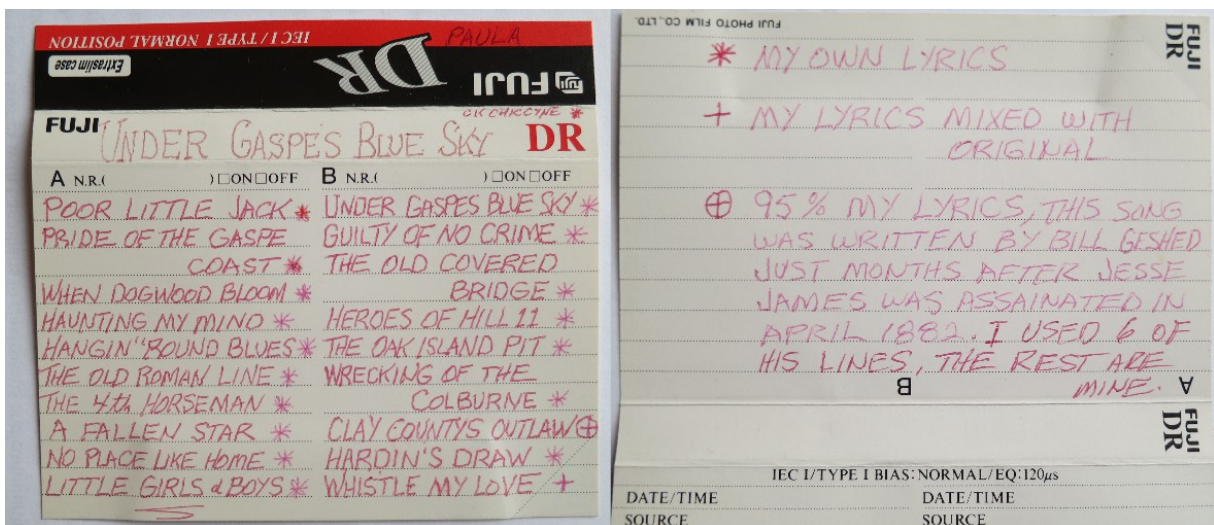 IEC I / TYPE I NORMAL POSITION
PAULA
Extraslim case
DR
FUJI
FUJI
UNDER GASPE'S BLUE SKY
DR
A N.R.( ) □ON □OFF
POOR LITTLE JACK *
PRIDE OF THE GASPE
COAST *
WHEN DOGWOOD BLOOM *
HAUNTING MY MIND *
HANGIN" ROUND BLUES *
THE OLD ROMAN LINE *
THE 4th HORSEMAN *
A FALLEN STAR *
NO PLACE LIKE HOME *
LITTLE GIRLS & BOYS *
B N.R.( ) □ON □OFF
UNDER GASPES BLUE SKY *
GUILTY OF NO CRIME *
THE OLD COVERED
BRIDGE *
HEROES OF HILL 11 *
THE OAK ISLAND PIT *
WRECKING OF THE
COLBURNE *
CLAY COUNTYS OUTLAW ⊕
HARDIN'S DRAW *
WHISTLE MY LOVE +
FUJI PHOTO FILM CO., LTD.
FUJI
DR
* MY OWN LYRICS
+ MY LYRICS MIXED WITH
ORIGINAL
⊕ 95% MY LYRICS, THIS SONG
WAS WRITTEN BY BILL GESHED
JUST MONTHS AFTER JESSE
JAMES WAS ASSAINATED IN
APRIL 1882. I USED 6 OF
HIS LINES, THE REST ARE
MINE.
B
A
FUJI
DR
IEC I/TYPE I BIAS: NORMAL/EQ: 120µs
DATE/TIME
DATE/TIME
SOURCE
SOURCE